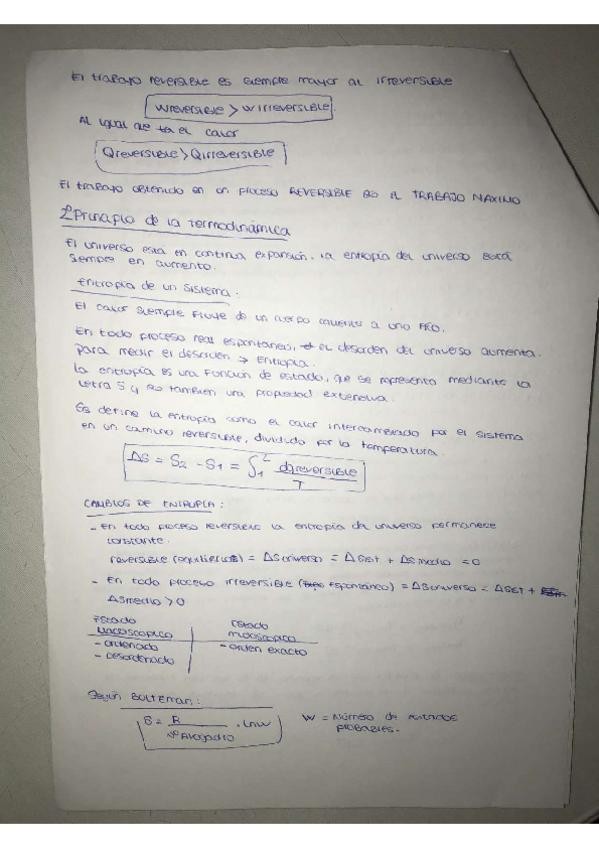 El trabajo reversible es siempre mayor al irreversible
Wreversible > Wirreversible.
Al igual que el calor
Qreversible > Qirreversible
El trabajo obtenido en un proceso REVERSIBLE es el TRABAJO MAXIMO
2º Principio de la Termodinámica
El universo está en continua expansión. la entropía del universo está
siempre en aumento.
Entropía de un sistema:
El calor siempre fluye de un cuerpo caliente a uno frío.
En todo proceso real espontaneo, el desorden del universo aumenta.
Para medir el desorden → Entropia.
la entropía es una función de estado, que se representa mediante la
letra S y es tambien una propiedad extensiva.
Se define la entropia como el calor intercambiado por el sistema
en un camino reversible, dividido por la temperatura.
ΔS = S2 - S1 = ∫1 2 dqreversible / T
CAMBIOS DE ENTROPIA:
- En todo proceso reversible la entropía del universo permanece
constante.
reversible (equilibrio) = ΔSuniverso = ΔSsist + ΔSmedio = 0
- En todo proceso irreversible (espontáneo) = ΔSuniverso = ΔSsist +
ΔSmedio > 0
Estado Macroscopico | Estado microscopico
- ordenado | - orden exacto
- desordenado
Según Boltzman:
S = R / Nº Avogadro . LnW W = Número de estados
probables.